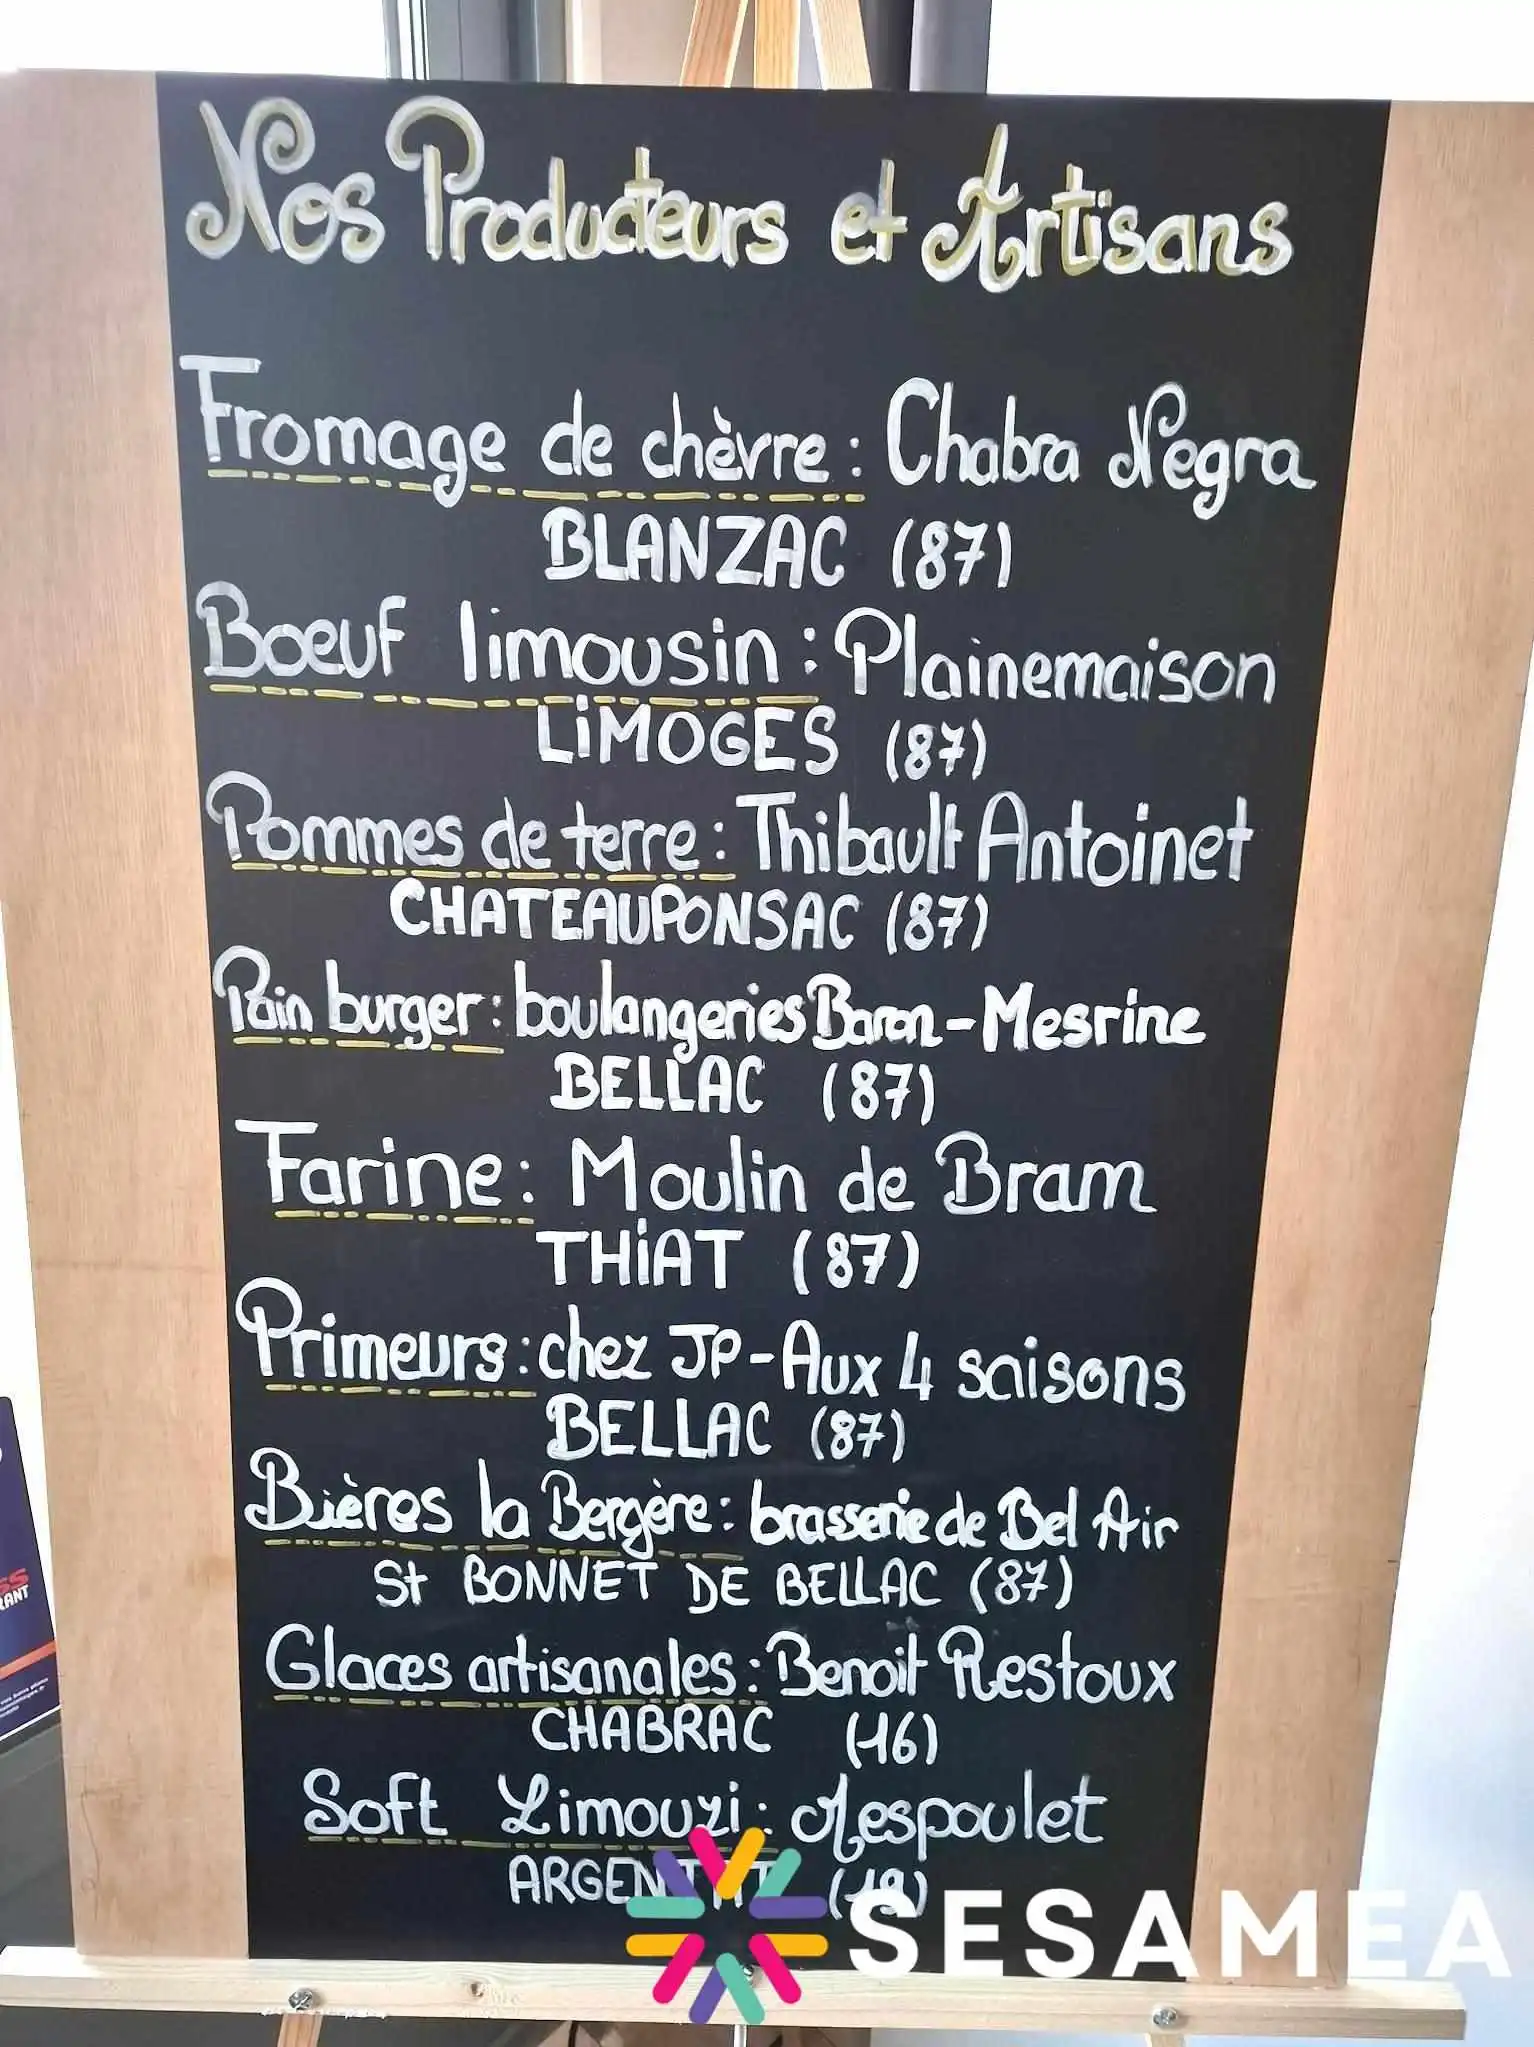 Nos Producteurs et Artisans
Fromage de chèvre : Chabra Negra
BLANZAC (87)
Boeuf limousin : Plainemaison
LiMOGES (87)
Pommes de terre : Thibault Antoinet
CHATEAUPONSAC (87)
Pain burger : boulangeries Baron - Mesrine
BELLAC (87)
Farine : Moulin de Bram
THiAT (87)
Primeurs : chez JP - Aux 4 saisons
BELLAC (87)
Bières la Bergère : brasserie de Bel Air
St BONNET DE BELLAC (87)
Glaces artisanales : Benoit Restoux
CHABRAC (16)
Soft Limouzi : Mespoulet
ARGENTAT
SESAMEA